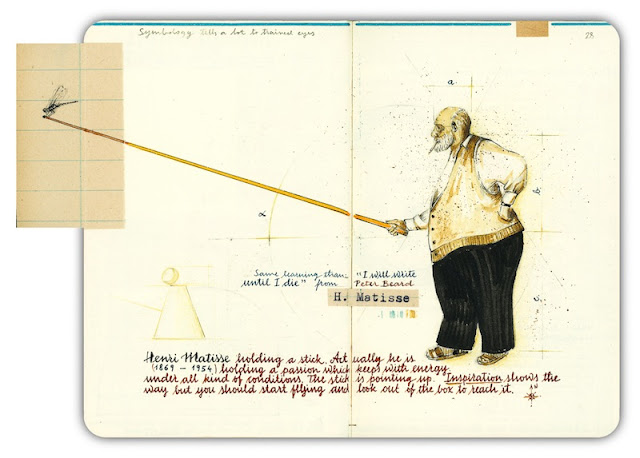 Symbology tells a lot to trained eyes
28
a.
b.
c.
α
Same learning than "I will write
until I die" from Peter Beard
H. Matisse
Henri Matisse holding a stick. Actually he is
(1869 – 1954) holding a passion which keeps with energy
under all kind of conditions. The stick is pointing up. Inspiration shows the
way but you should start flying and look out of the box to reach it.